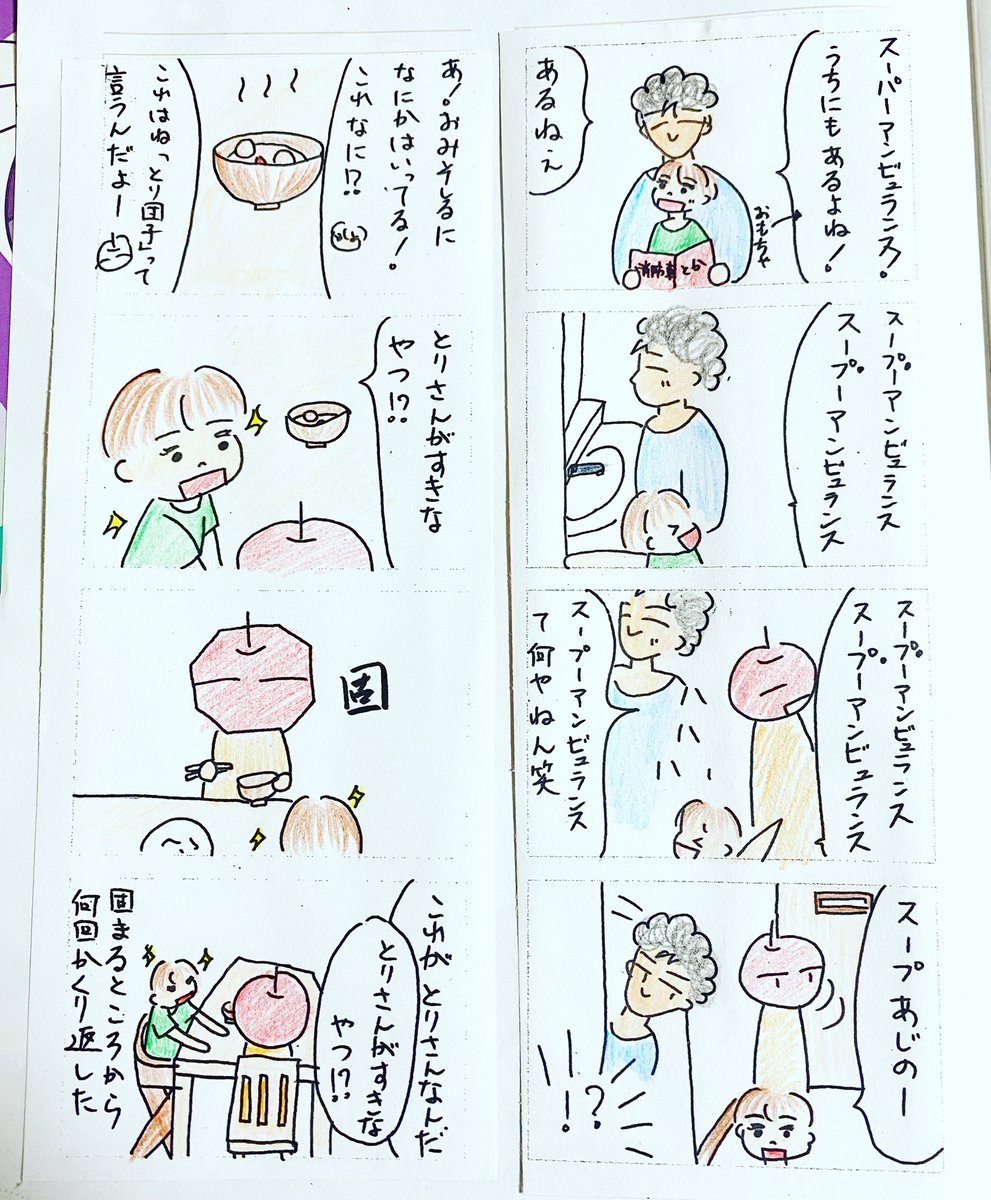 スーパーアンビュランス!
うちにもあるよね!
おもちゃ
あるねぇ
消防車とか
スープーアンビュランス
スープーアンビュランス
スープーアンビュランス
スープーアンビュランス
スープーアンビュランス
て何やねん笑
スープあじのー
!?
あ!おみそしるに
なにかはいってる!
これなに!?
これはねっとり団子って
言うんだよー
とりさんがすきな
やつ!?
固
これがとりさんなんだ
とりさんがすきな
やつ!?
固まるところから
何回かくり返した